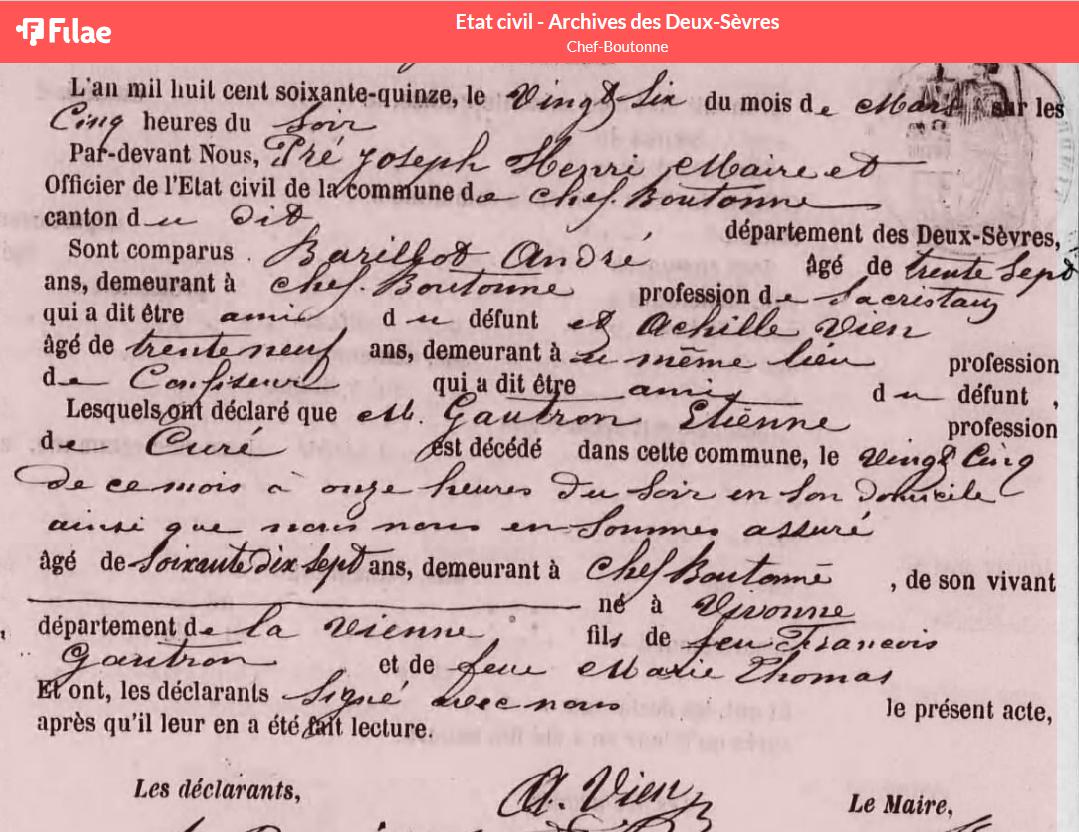 Filae
Etat civil - Archives des Deux-Sèvres
Chef-Boutonne
L'an mil huit cent soixante-quinze, le Vingt Six du mois de Mars sur les
Cinq heures du Soir
Par-devant Nous, Pré Joseph Henri Maire et
Officier de l'Etat civil de la commune de Chef-Boutonne
canton du dit
département des Deux-Sèvres,
Sont comparus Barillot André âgé de trente Sept
ans, demeurant à Chef-Boutonne profession de Sacristain
qui a dit être ami du défunt et Achille Vien
âgé de trente neuf ans, demeurant à ce même lieu profession
de Confiseur qui a dit être ami du défunt,
Lesquels ont déclaré que M. Gautron Etienne profession
de Curé est décédé dans cette commune, le vingt Cinq
de ce mois à onze heures du Soir en Son domicile
ainsi que nous nous en Sommes assuré
âgé de Soixante dix Sept ans, demeurant à Chef Boutonne, de son vivant
né à Vivonne
département de la Vienne, fils de feu Francois
Gautron et de feue Marie Thomas
Et ont, les déclarants Signé avec nous le présent acte,
après qu'il leur en a été fait lecture.
Les déclarants, A. Vien Le Maire,